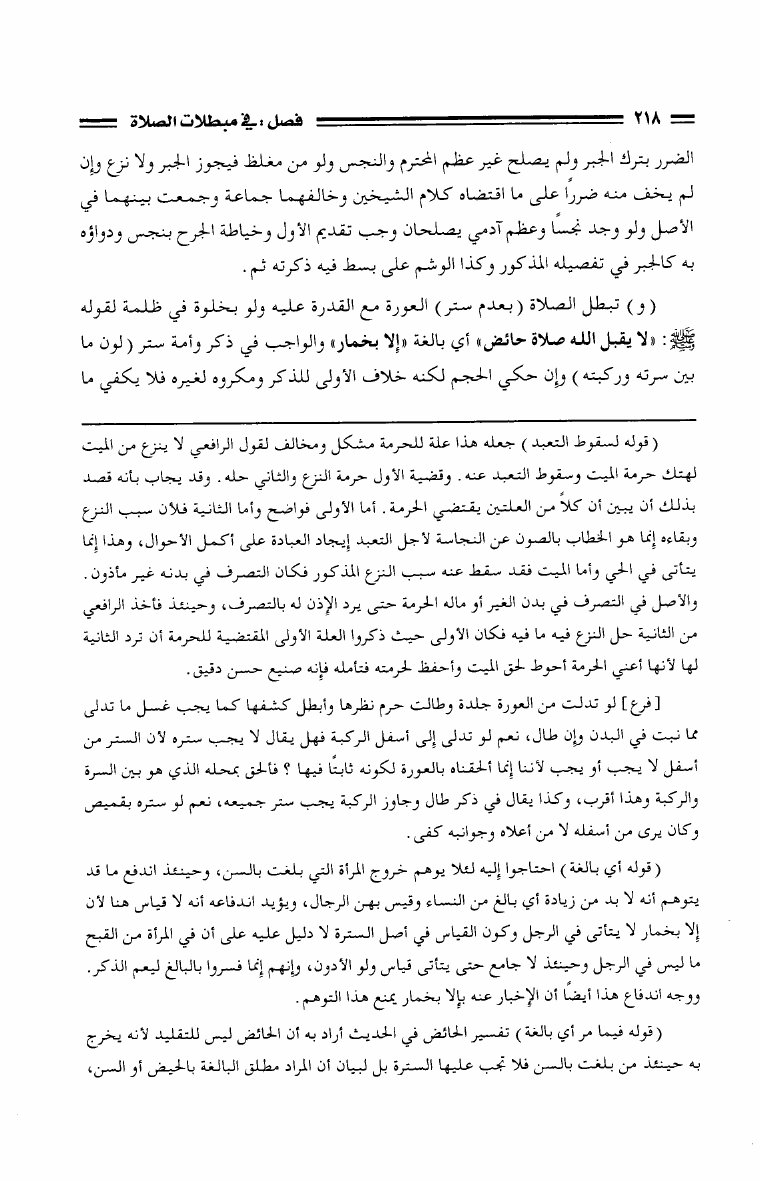 ٢١٨ فصل : في مبطلات الصلاة
الضرر بترك الجبر ولم يصلح غير عظم المحترم والنجس ولو من مغلظ فيجوز الجبر ولا نزع وإن
لم يخف منه ضرراً على ما اقتضاه كلام الشيخين وخالفهما جماعة وجمعت بينهما في
الأصل ولو وجد نجساً وعظم آدمي يصلحان وجب تقديم الأول وخياطة الجرح بنجس ودواؤه
به كالجبر في تفصيله المذكور وكذا الوشم على بسط فيه ذكرته ثم .
( و ) تبطل الصلاة ( بعدم ستر ) العورة مع القدرة عليه ولو بخلوة في ظلمة لقوله
ﷺ : «لا يقبل الله صلاة حائض» أي بالغة «إلا بخمار» والواجب في ذكر وأمة ستر ( لون ما
بين سرته وركبته ) وإن حكي الحجم لكنه خلاف الأولى للذكر ومكروه لغيره فلا يكفي ما
( قوله لسقوط التعبد ) جعله هذا علة للحرمة مشكل ومخالف لقول الرافعي لا ينزع من الميت
لهتك حرمة الميت وسقوط التعبد عنه . وقضية الأول حرمة النزع والثاني حله . وقد يجاب بأنه قصد
بذلك أن يبين أن كلاً من العلتين يقتضي الحرمة . أما الأولى فواضح وأما الثانية فلأن سبب النزع
وبقاءه إنما هو الخطاب بالصون عن النجاسة لأجل التعبد إيجاد العبادة على أكمل الأحوال، وهذا إنما
يتأتى في الحي وأما الميت فقد سقط عنه سبب النزع المذكور فكان التصرف في بدنه غير مأذون .
والأصل في التصرف في بدن الغير أو ماله الحرمة حتى يرد الإذن له بالتصرف، وحينئذ فأخذ الرافعي
من الثانية حل النزع فيه ما فيه فكان الأولى حيث ذكروا العلة الأولى المقتضية للحرمة أن ترد الثانية
لها لأنها أعني الحرمة أحوط لحق الميت وأحفظ لحرمته فتأمله فإنه صنيع حسن دقيق .
[ فرع ] لو تدلت من العورة جلدة وطالت حرم نظرها وأبطل كشفها كما يجب غسل ما تدلى
مما نبت في البدن وإن طال، نعم لو تدلى إلى أسفل الركبة فهل يقال لا يجب ستره لأن الستر من
أسفل لا يجب أو يجب لأننا إنما ألحقناه بالعورة لكونه ثابتاً فيها ؟ فألحق بمحله الذي هو بين السرة
والركبة وهذا أقرب، وكذا يقال في ذكر طال وجاوز الركبة يجب ستر جميعه، نعم لو ستره بقميص
وكان يرى من أسفله لا من أعلاه وجوانبه كفى .
( قوله أي بالغة ) احتاجوا إليه لئلا يوهم خروج المرأة التي بلغت بالسن، وحينئذ اندفع ما قد
يتوهم أنه لا بد من زيادة أي بالغ من النساء وقيس بهن الرجال، ويؤيد اندفاعه أنه لا قياس هنا لأن
إلا بخمار لا يتأتى في الرجل وكون القياس في أصل السترة لا دليل عليه على أن في المرأة من القبح
ما ليس في الرجل وحينئذ لا جامع حتى يتأتى قياس ولو الأدون، وإنهم إنما فسروا بالبالغ ليعم الذكر .
ووجه اندفاع هذا أيضاً أن الإخبار عنه بإلا بخمار يمنع هذا التوهم .
( قوله فيما مر أي بالغة ) تفسير الحائض في الحديث أراد به أن الحائض ليس للتقليد لأنه يخرج
به حينئذ من بلغت بالسن فلا تجب عليها السترة بل لبيان أن المراد مطلق البالغة بالحيض أو السن،